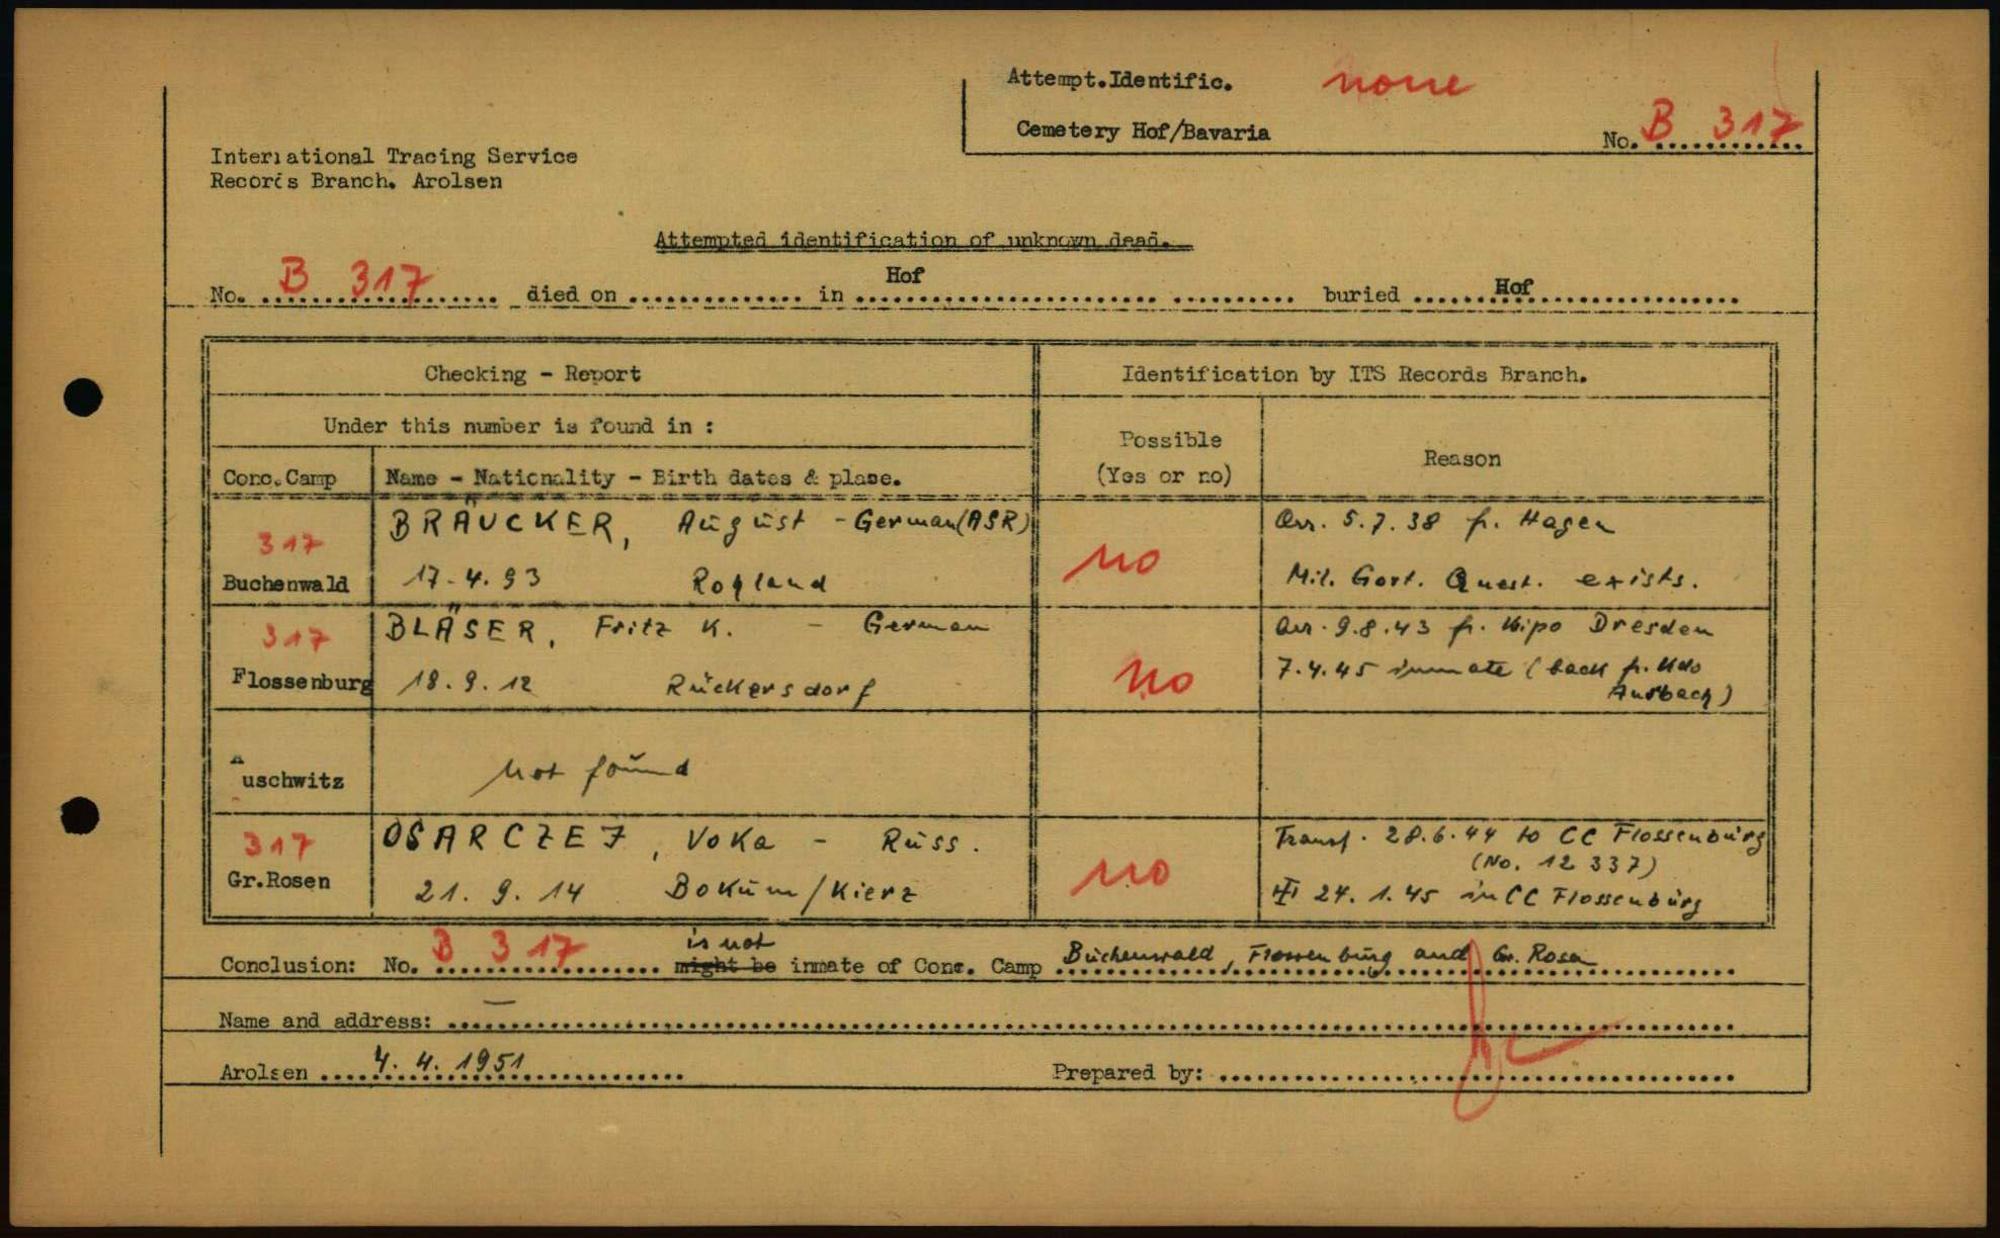 Attempt.Identific. none
Cemetery Hof/Bavaria
No. B 317
International Tracing Service
Records Branch. Arolsen
Attempted identification of unknown dead.
No. B 317 died on .............. in Hof buried Hof
Checking - Report
Identification by ITS Records Branch.
Under this number is found in :
Possible
(Yes or no)
Reason
Conc.Camp
Name - Nationality - Birth dates & place.
317
Buchenwald
BRÄUCKER, August - German (ASR)
17.4.93 Rogland
no
Arr. 5.7.38 fr. Hagen
Mil. Gort. Quest. exists.
317
Flossenburg
BLÄSER, Fritz K. - German
18.9.12 Rückersdorf
no
arr. 9.8.43 fr. Kipo Dresden
7.4.45 inmate (back fr. Kdo
Ansbach)
Auschwitz
not found
317
Gr.Rosen
OSARCZEJ, Voka - Russ.
21.9.14 Bokum/Kierz
no
Transf. 28.6.44 to CC Flossenbürg
(No. 12 337)
24.1.45 in CC Flossenbürg
Conclusion: No. B 317 is not might be inmate of Conc. Camp Buchenwald, Flossenbürg and Gr. Rosen
Name and address: —
Arolsen 4.4.1951
Prepared by: